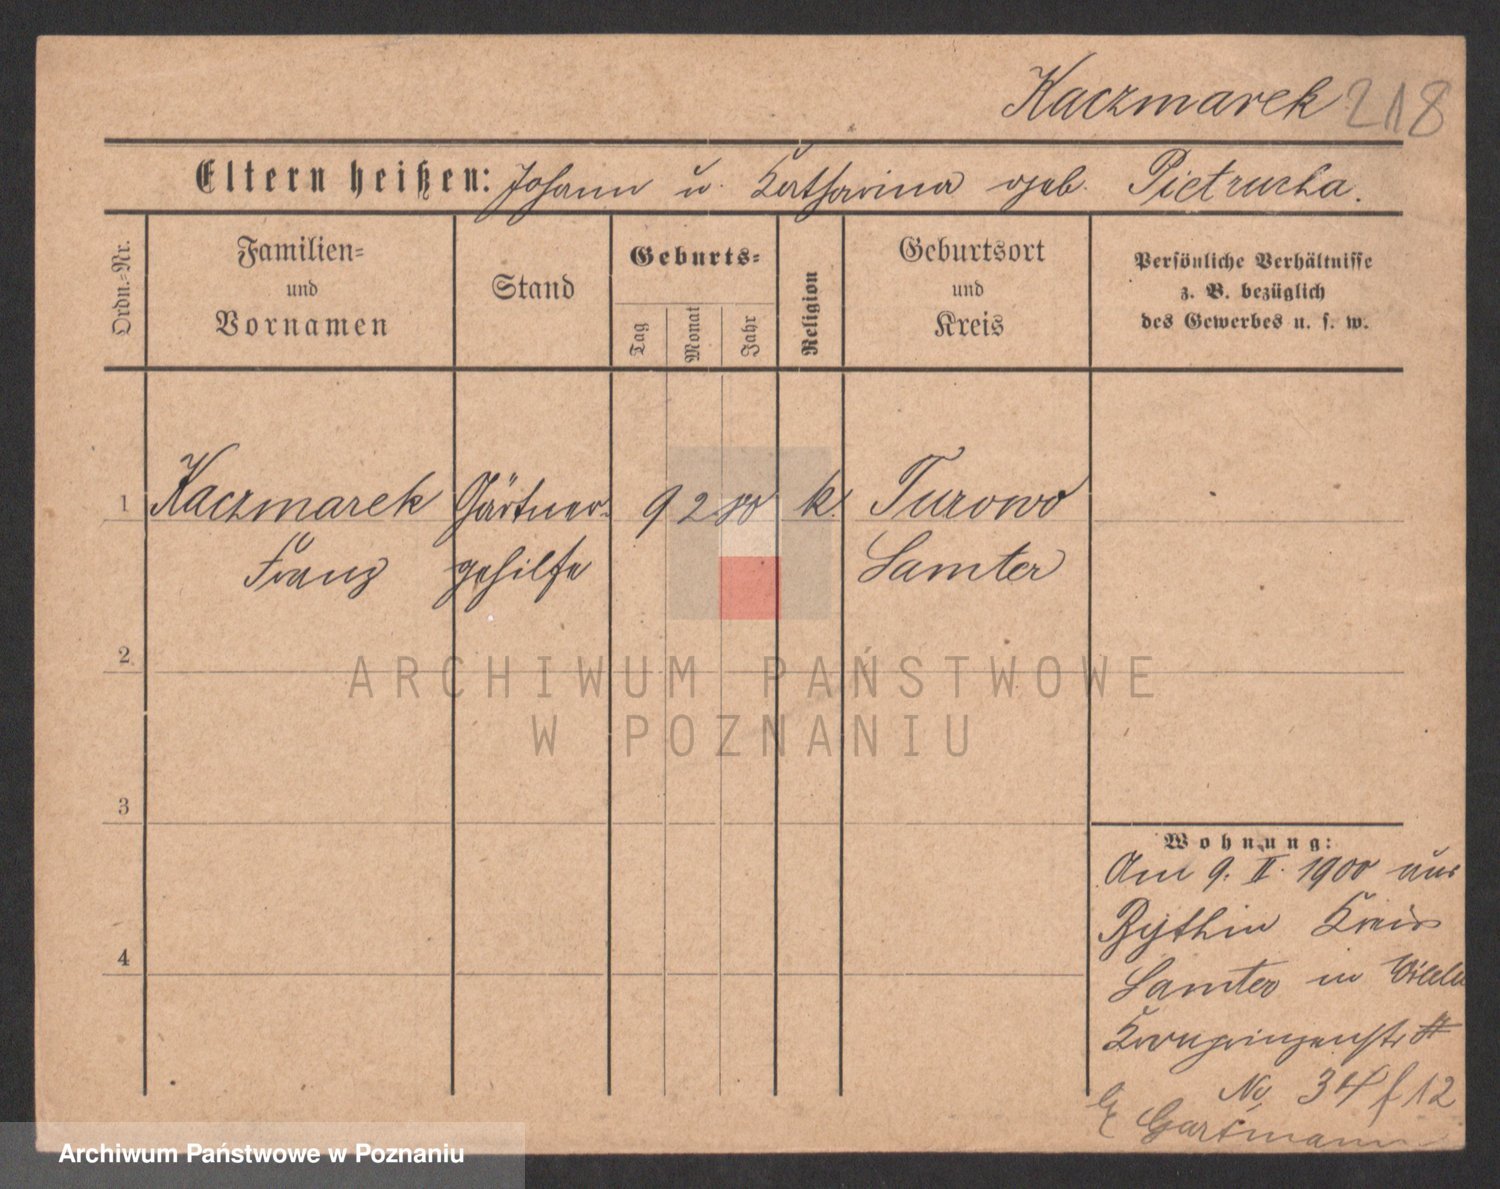 Kaczmarek 218
Eltern heißen: Johann u. Katharina geb. Pietrucha.
Ordn.-Nr.
Familien-
und
Vornamen
Stand
Geburts-
Tag
Monat
Jahr
Religion
Geburtsort
und
Kreis
Persönliche Verhältnisse
z. B. bezüglich
des Gewerbes u. s. w.
1 Kaczmarek Gärtner- 9 2 80 k. Turowo
Franz gehilfe Samter
2
3
4
Wohnung:
Am 9. II. 1900 aus
Bythin Kreis
Samter in Wilda
Kronprinzenstr
No 34 f 12
Gartmann
ARCHIWUM PAŃSTWOWE
W POZNANIU
Archiwum Państwowe w Poznaniu